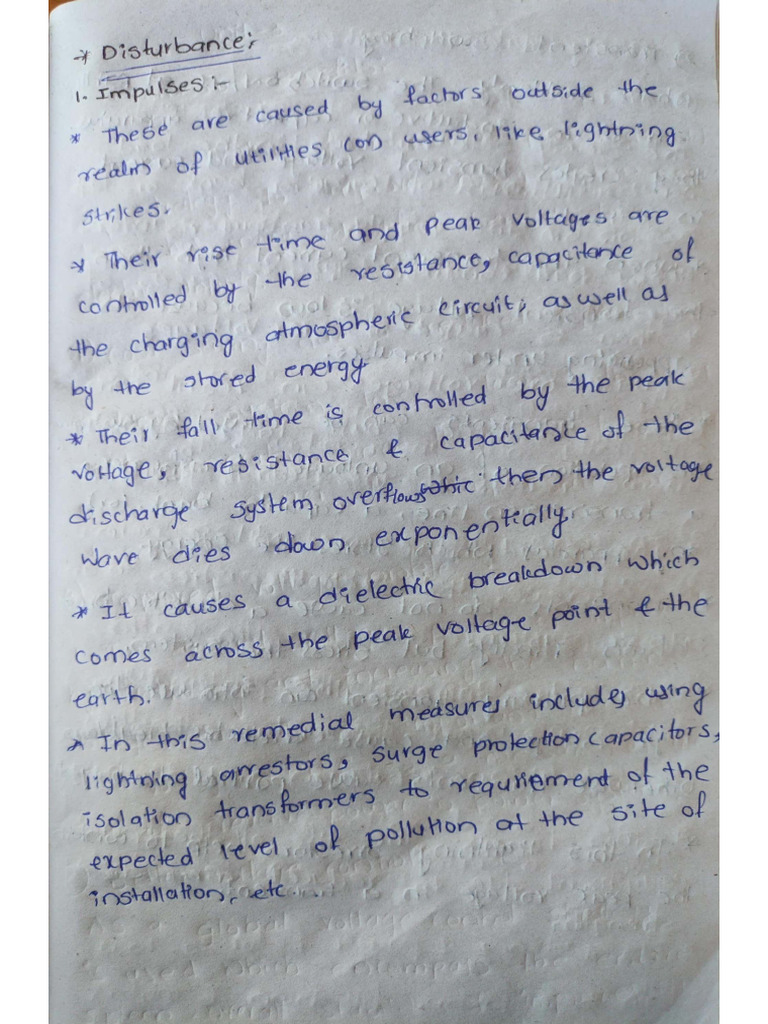 * Disturbance:
1. Impulses :-
* These are caused by factors outside the
realm of utilities (on users, like lightning
strikes.
* Their rise time and peak voltages are
controlled by the resistance, capacitance of
the charging atmospheric circuit, as well as
by the stored energy
* Their fall time is controlled by the peak
voltage, resistance & capacitance of the
discharge system then the voltage
wave dies down exponentially.
* It causes a dielectric breakdown which
comes across the peak voltage point & the
earth.
* In this remedial measures includes using
lightning arrestors, surge protection capacitors,
isolation transformers to requriement of the
expected level of pollution at the site of
installation, etc.